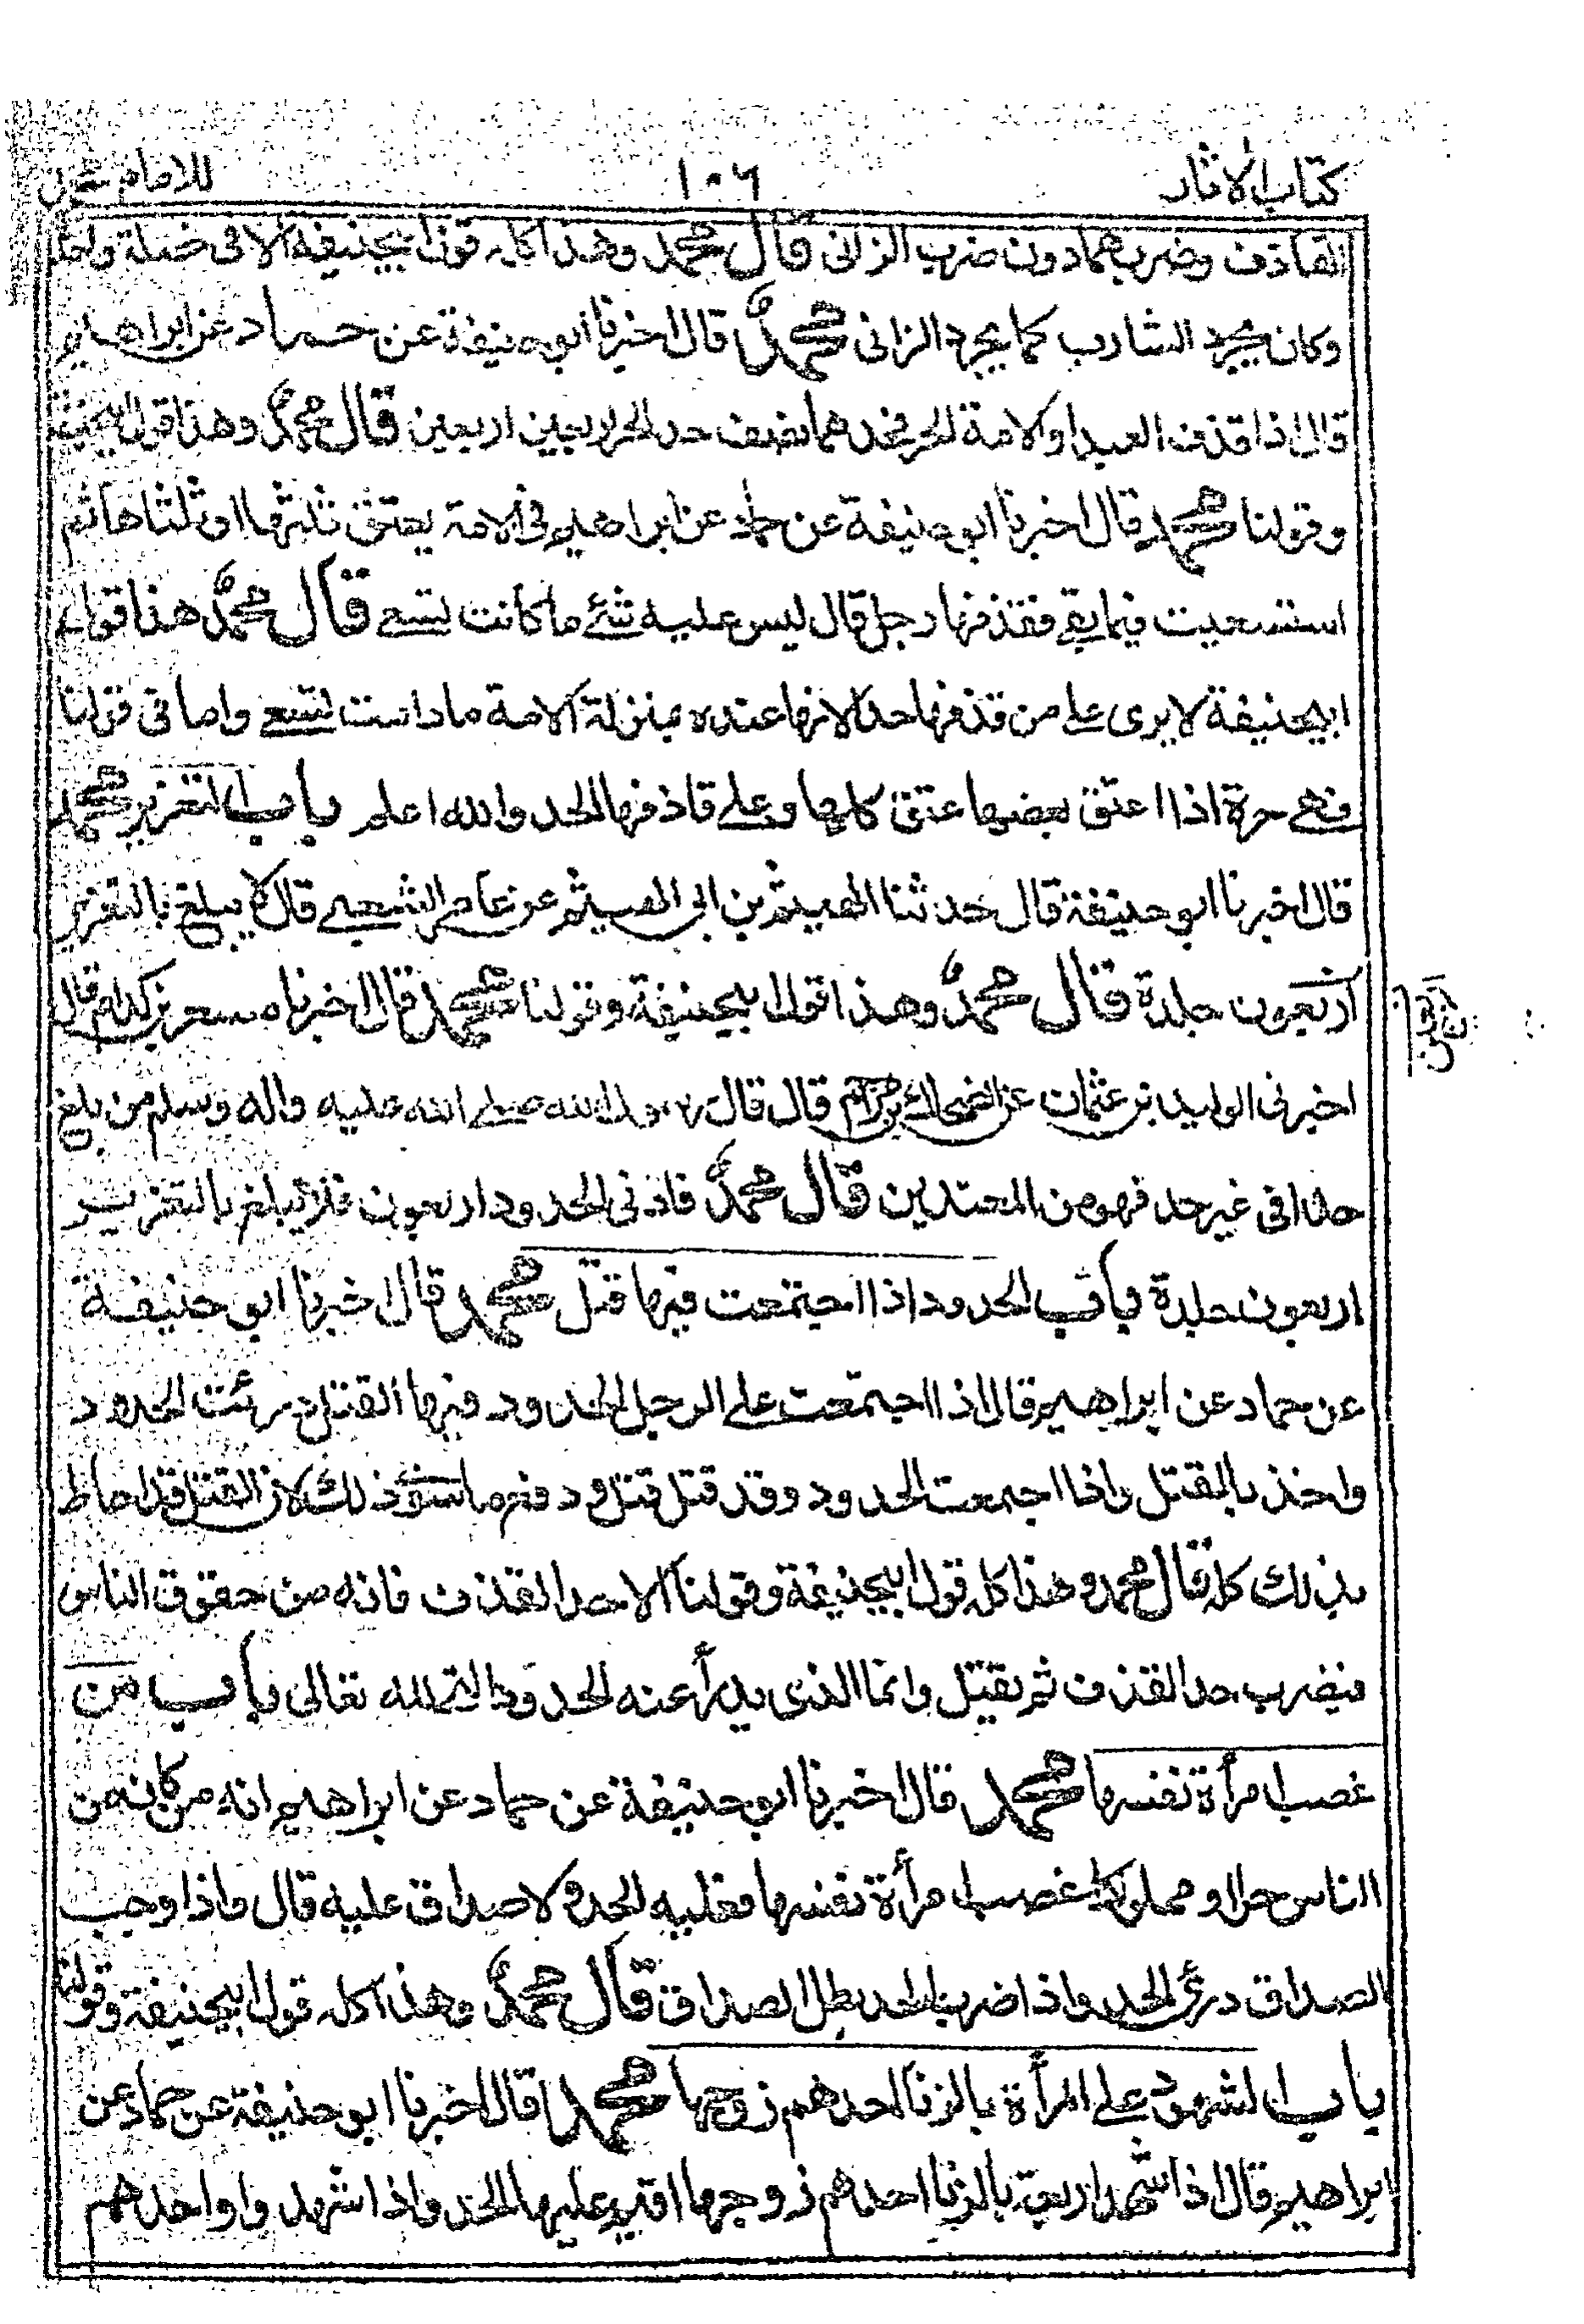 كتاب الآثار
١٠٦
للامام محمد
القاذف وضربهما دون ضرب الزانى قال محمد وهذا كله قول ابيحنيفة الا فى خصلة واحدة
وكان يجرد الشارب كما يجرد الزانى محمد قال اخبرنا ابو حنيفة عن حماد عن ابراهيم
قال اذا قذف العبد او الامة الحر فحدهما نصف حد الحر اربعين اربعين قال محمد وهذا قول ابيحنيفة
وقولنا محمد قال اخبرنا ابو حنيفة عن حماد عن ابراهيم فى الامة يعتق ثلثها او ثلثاها ثم
استسعيت فيما بقے فقذفها رجل قال ليس عليه شئے ما كانت تسعے قال محمد هذا قول
ابيحنيفة لا يرى علے من قذفها حدا لانها عنده بمنزلة الامة ما دامت تسعے واما فى قولنا
فهے حرة اذا اعتق بعضها عتق كلها وعلے قاذفها الحد والله اعلم باب التعزير محمد
قال اخبرنا ابو حنيفة قال حدثنا الهيثم بن ابى الهيثم عن عامر الشعبے قال لا يبلغ بالتعزير
اربعون جلدة قال محمد وهذا قول ابيحنيفة وقولنا محمد قال اخبرنا مسعر بن كدام قال
اربعين
اخبرنى الوليد بن عثمان عن الضحاك بن مزاحم قال قال رسول الله صلے الله عليه واله وسلم من بلغ
حدا فى غير حد فهو من المعتدين قال محمد فادنى الحدود اربعون فلا يبلغ بالتعزير
اربعون جلدة باب الحدود اذا اجتمعت فيها قتل محمد قال اخبرنا ابو حنيفة
عن حماد عن ابراهيم قال اذا اجتمعت علے الرجل الحدود فيها القتل درئت الحدود
واخذ بالقتل واذا اجتمعت الحدود وقد قتل قتل ودفع ما سوى ذلك لان القتل قد احاط
بذلك كله قال محمد وهذا كله قول ابيحنيفة وقولنا الا حد القذف فانه من حقوق الناس
فيضرب حد القذف ثم يقتل وانما الذى يدرأ عنه الحدود التى لله تعالى باب من
غصب امرأة نفسها محمد قال اخبرنا ابو حنيفة عن حماد عن ابراهيم انه من كان من
الناس حرا او مملوكا غصب امرأة نفسها فعليه الحد ولا صداق عليه قال واذا وجب
الصداق درئ الحد واذا ضرب الحد بطل الصداق قال محمد وهذا كله قول ابيحنيفة وقولنا
باب الشهود علے المرأة بالزنا احدهم زوجها محمد قال اخبرنا ابو حنيفة عن حماد عن
ابراهيم قال اذا شهد اربعة بالزنا احدهم زوجها اقيم عليها الحد واذا شهدوا واحدهم